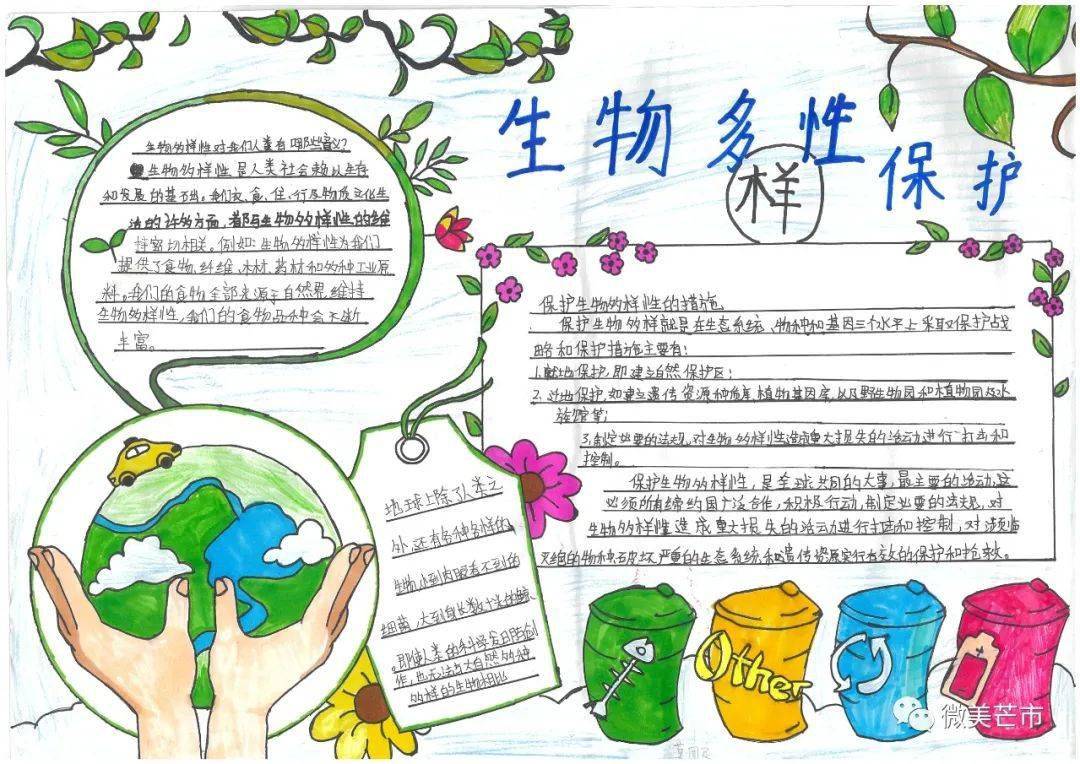 生物多样性
保护
生物多样性对我们人类有哪些意义?
生物多样性是人类社会赖以生存
和发展的基础。我们衣、食、住、行及物质文化生
活的许多方面,都与生物多样性的维
持密切相关。例如:生物多样性为我们
提供了食物、纤维、木材、药材和多种工业原
料。我们的食物全部来源于自然界,维持
生物多样性,我们的食物品种会不断
丰富。
保护生物多样性的措施
保护生物多样就是在生态系统、物种和基因三个水平上采取保护战
略和保护措施主要有:
1.就地保护,即建立自然保护区;
2.迁地保护,如建立遗传资源种质库、植物基因库,以及野生物园和植物园及水
族馆等;
3.制定必要的法规,对生物多样性造成重大损失的活动进行打击和
控制。
保护生物多样性,是全球共同的大事,最主要的活动,这
必须所有缔约国广泛合作,积极行动,制定必要的法规,对
生物多样性造成重大损失的活动进行打击和控制,对濒临
灭绝的物种、破坏严重的生态系统和遗传资源实行有效的保护和抢救。
地球上除了人类之
外,还有各种各样的
生物,小到肉眼看不到的
细菌,大到身长数十米的鲸
。即使人类的科学每日所创
作,也无法与大自然多种
多样的生物相比
Other
微美芒市